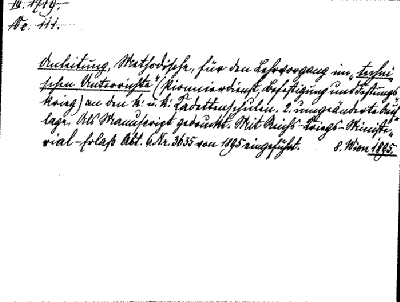 IV. 1719.
No. 111.
Anleitung, Methodische, für den Lehrvorgang im „techni-
schen Unterrichte" (Pionnierdienst, Befestigung und Festungs-
krieg) an den k. u. k. Kadettenschulen. 2. umgeänderte Auf-
lage. Als Manuscript gedruckt. Mit Reichs-Kriegs-Ministe-
rial-Erlaß Abt. 6 Nr. 3635 von 1895 eingeführt. 8. Wien 1895.